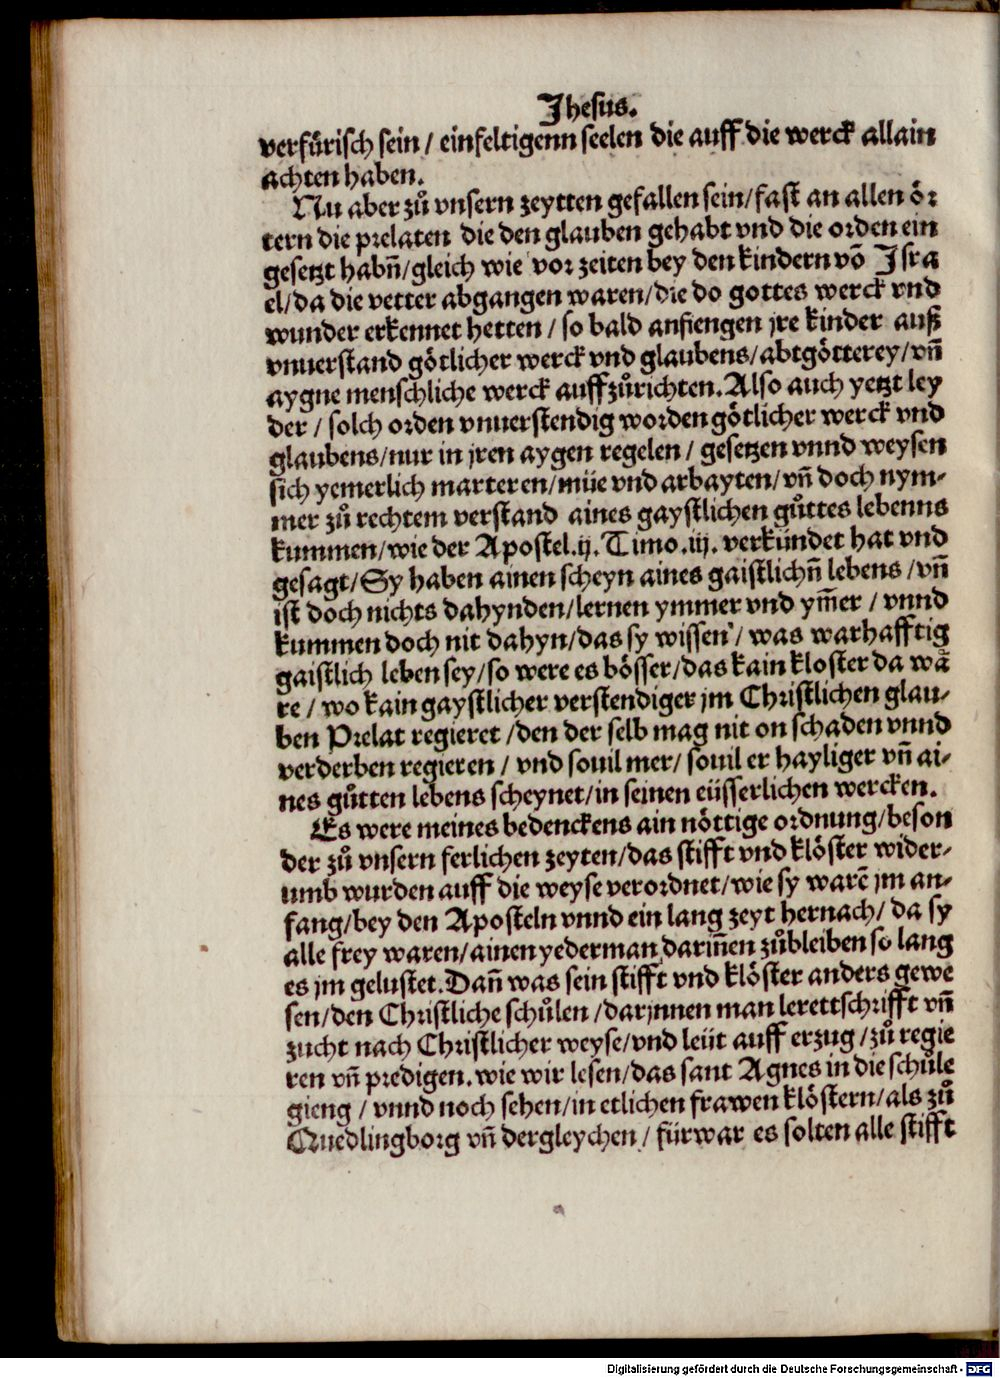 Jhesus.
verfürisch sein / einfeltigenn seelen die auff die werck allain
achten haben.
Nu aber zů vnsern zeytten gefallen sein/fast an allen ö⸗
tern die prelaten die den glauben gehabt vnd die orden ein
gesetzt habñ/gleich wie vor zeiten bey den kindern võ Isra
el/da die vetter abgangen waren/die do gottes werck vnd
wunder erkennet hetten / so bald anfiengen jre kinder auß
vnuerstand götlicher werck vnd glaubens/abtgötterey/vñ
aygne menschliche werck auffzůrichten. Also auch yetzt ley
der / solch orden vnuerstendig worden götlicher werck vnd
glaubens/nur in jren aygen regelen / gesetzen vnnd weysen
sich yemerlich marteren/müe vnd arbayten/vñ doch nym⸗
mer zů rechtem verstand aines gaystlichen gůttes lebenns
kummen/wie der Apostel.ij. Timo.iij. verkündet hat vnd
gesagt/Sy haben ainen scheyn aines gaistlichñ lebens /vñ
ist doch nichts dahynden/lernen ymmer vnd ym̃er / vnnd
kummen doch nit dahyn/das sy wissen / was warhafftig
gaistlich leben sey/so were es bösser/das kain kloster da wä
re / wo kain gaystlicher verstendiger jm Christlichen glau⸗
ben Prelat regieret /den der selb mag nit on schaden vnnd
verderben regieren / vnd souil mer/ souil er hayliger vñ ai⸗
nes gůtten lebens scheynet/in seinen eüsserlichen wercken.
Es were meines bedenckens ain nöttige ordnung/beson
der zů vnsern ferlichen zeyten/das stifft vnd klöster wider⸗
umb wurden auff die weyse verordnet/wie sy warẽ jm an⸗
fang/bey den Aposteln vnnd ein lang zeyt hernach/ da sy
alle frey waren/ainen yederman darin̄en zůbleiben so lang
es jm gelustet. Dañ was sein stifft vnd klöster anders gewe
sen/den Christliche schůlen /darjnnen man lerettschrifft vñ
zucht nach Christlicher weyse/vnd leüt auff erzug /zů regie
ren vñ predigen. wie wir lesen/das sant Agnes in die schůle
gieng / vnnd noch sehen/in etlichen frawen klöstern/als zů
Quedlingborg vñ dergleychen / fürwar es solten alle stifft
Digitalisierung gefördert durch die Deutsche Forschungsgemeinschaft - DFG